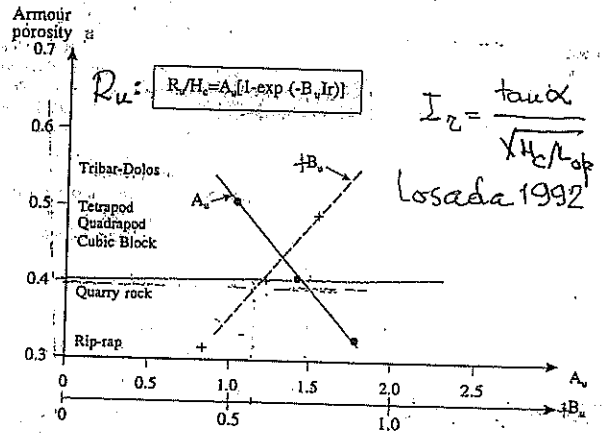 Armour
porosity n
0.7
Ru: Ru/Hc=Au[1-exp (-BuIr)]
Ir = tanα / √Hc/Lop
Losada 1992
0.6
Tribar-Dolos
0.5
Tetrapod
Quadrapod
Cubic Block
Au
+Bu
0.4
Quarry rock
Rip-rap
0.3
0 0.5 1.0 1.5 2.0 2.5 Au
0 0.5 1.0 +Bu